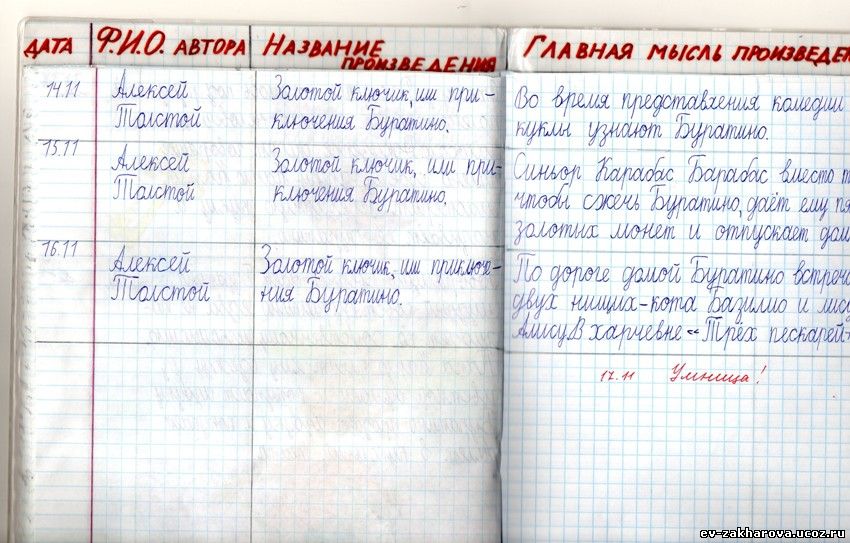 ДАТА
Ф.И.О. АВТОРА
НАЗВАНИЕ
ПРОИЗВЕДЕНИЯ
ГЛАВНАЯ МЫСЛЬ ПРОИЗВЕДЕН
14.11
Алексей
Толстой
Золотой ключик, или при-
ключения Буратино.
Во время представления комедии
куклы узнают Буратино.
15.11
Алексей
Толстой
Золотой ключик, или при-
ключения Буратино.
Синьор Карабас Барабас вместо т
чтобы сжечь Буратино, даёт ему пя
золотых монет и отпускает дом
16.11
Алексей
Толстой
Золотой ключик, или приключе-
ния Буратино.
По дороге домой Буратино встреча
двух нищих-кота Базилио и лис
Алису. В харчевне «Трёх пескарей»
17.11 Умница!
ev-zakharova.ucoz.ru